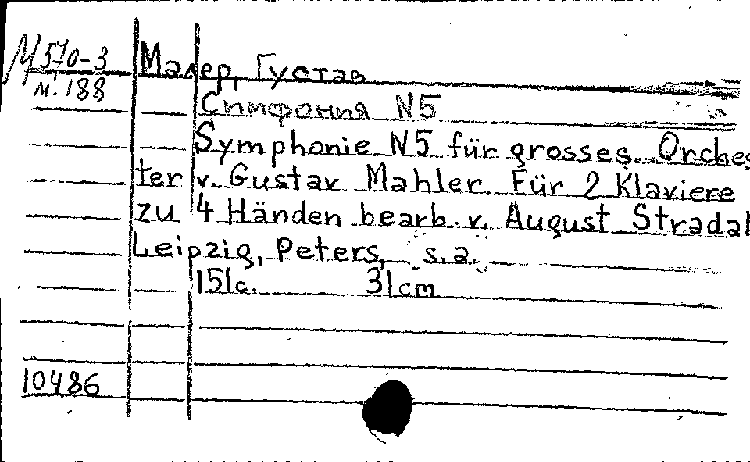 М 570-3 Малер, Густав
м. 188
Симфония N5
Symphonie N5 für grosses Orches
ter v. Gustav Mahler. Für 2 Klaviere
zu 4 Händen bearb. v. August Stradal
Leipzig, Peters, s.a.
151c. 31cm
10486